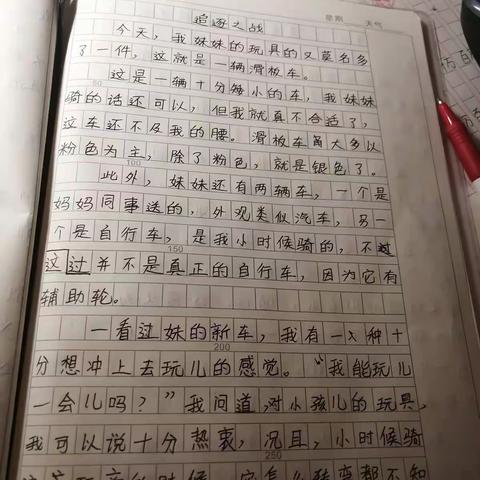 追逐之战
星期 天气
今天，我妹妹的玩具的又莫名多
了一件，这就是一辆滑板车。
这是一辆十分矮小的车，我妹妹
骑的话还可以，但我就真不合适了，
这车还不及我的腰。滑板车大多以
粉色为主，除了粉色，就是银色了。
100
此外，妹妹还有两辆车，一个是
妈妈同事送的，外观类似汽车，另一
个是自行车，是我小时候骑的，不过
150
这过并不是真正的自行车，因为它有
辅助轮。
一看过妹的新车，我有一种十
200
分想冲上去玩儿的感觉。“我能玩儿
一会儿吗？”我问道，对小孩儿的玩具，
我可以说十分热衷，况且，小时候骑
250